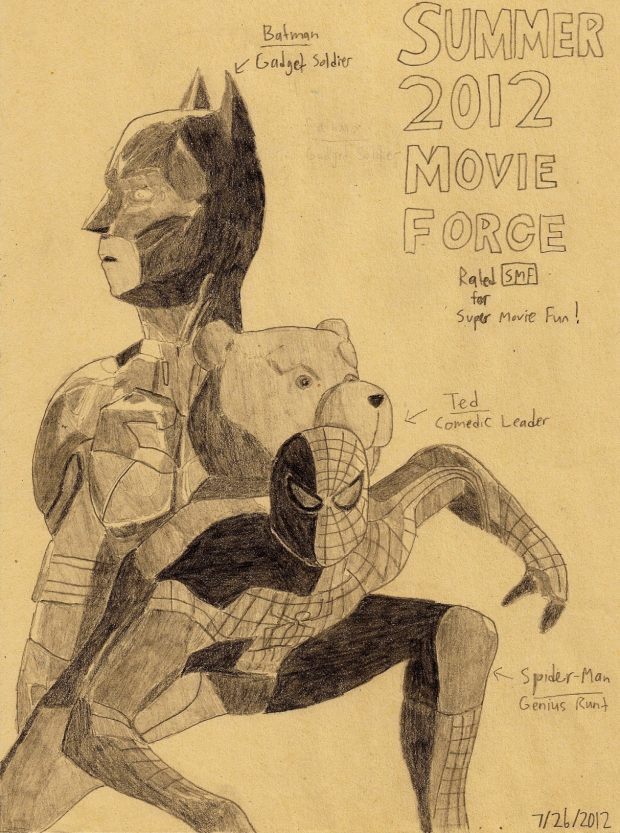 Batman
Gadget Soldier
SUMMER
2012
MOVIE
FORCE
Rated SMF
for
Super Movie Fun!
Ted
Comedic Leader
Spider-Man
Genius Runt
7/26/2012